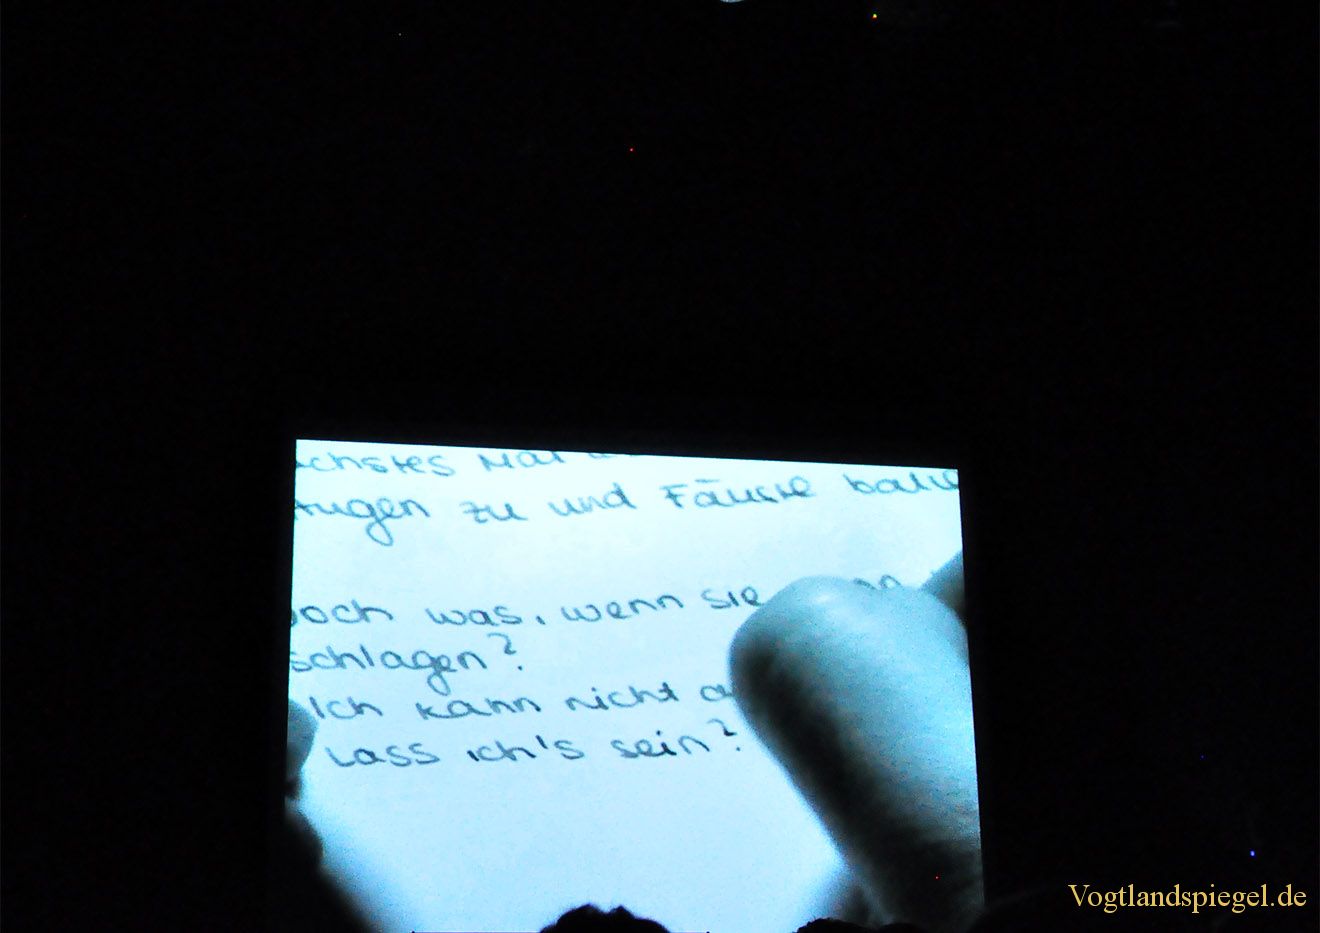 chstes Mal
Augen zu und Fäuste
Doch was, wenn sie
schlagen?
Ich kann nicht
Lass ich's sein?
Vogtlandspiegel.de